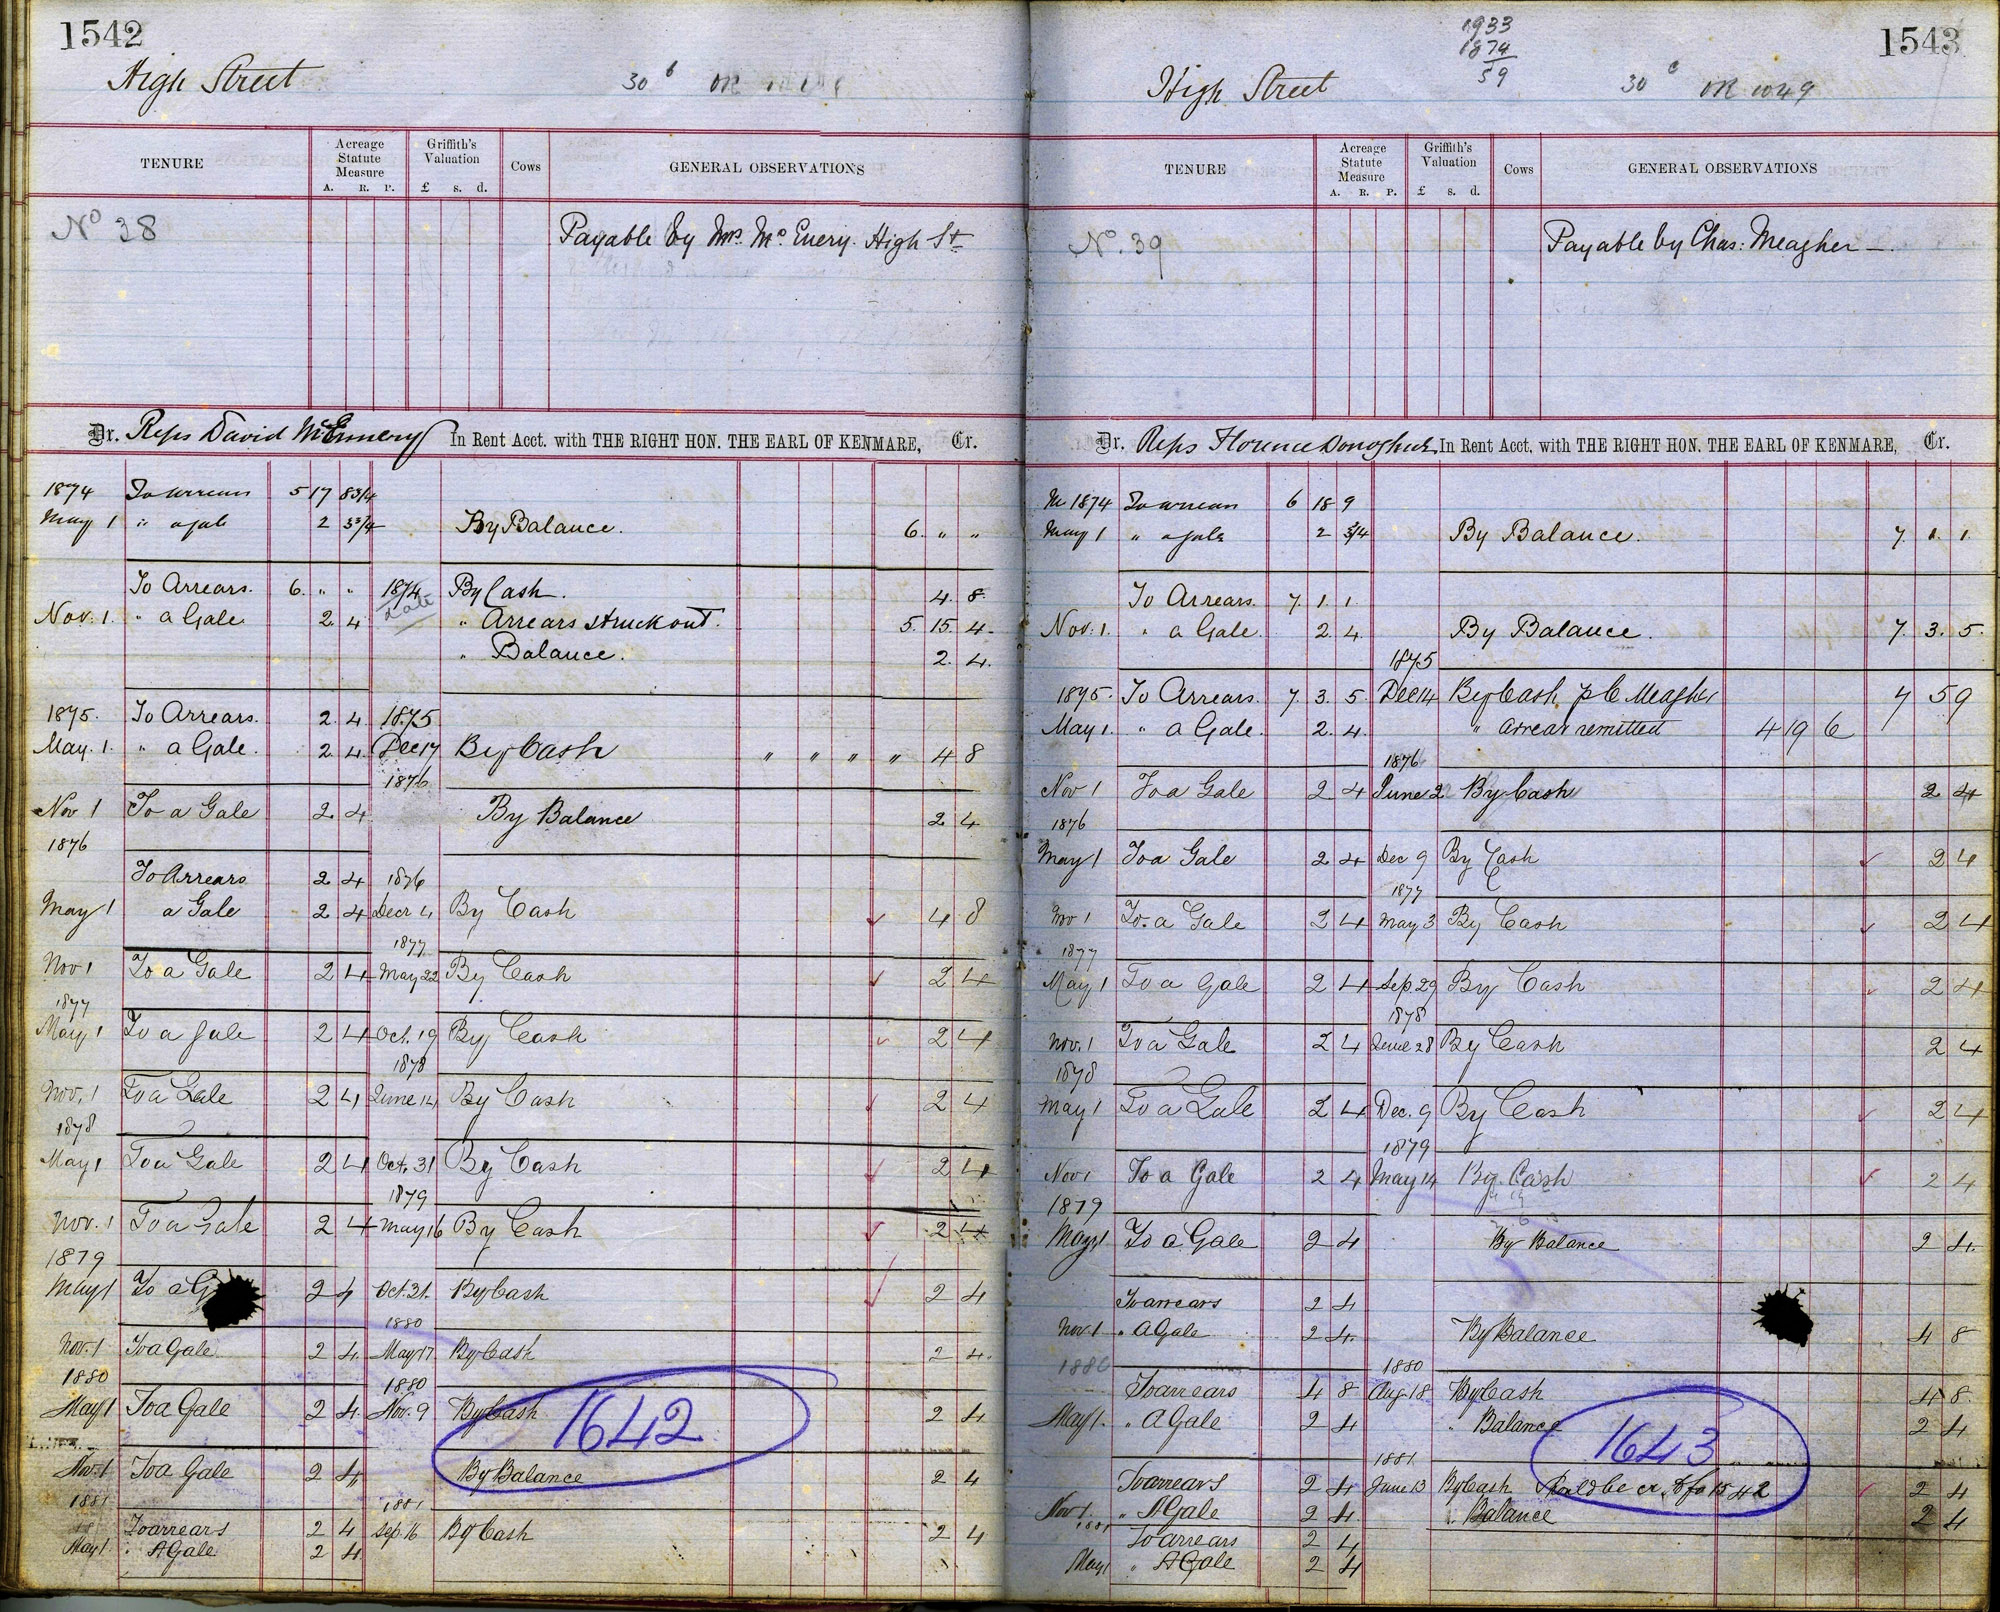 1542
High Street
30 b
TENURE
Acreage Statute Measure
A. R. P.
Griffith's Valuation
£ s. d.
Cows
GENERAL OBSERVATIONS
No 38
Payable by Mrs. Mc Enery. High St
Dr. Reps David McEnnery In Rent Acct. with THE RIGHT HON. THE EARL OF KENMARE, Cr.
1874 To arrears 5 17 8 3/4
May 1 " a gale 2 3 3/4 By Balance. 6. " "
To Arrears. 6. " " 1874 By Cash. 4. 8.
Nov. 1. " a Gale 2. 4 Date " Arrears struck out. 5. 15. 4.
" Balance. 2. 4.
1875. To Arrears. 2. 4. 1875
May. 1. " a Gale. 2. 4. Dec 17 By Cash " " " " 4 8
1876
Nov 1 To a Gale 2. 4. By Balance 2 4
1876
To Arrears 2 4 1876
May 1 a Gale 2 4 Decr 4 By Cash ✓ 4 8
1877
Nov 1 To a Gale 2 4 May 22 By Cash ✓ 2 4
1877
May 1 To a gale 2 4 Oct. 19 By Cash ✓ 2 4
1878
Nov. 1 To a Gale 2 4 June 14 By Cash ✓ 2 4
1878
May 1 To a Gale 2 4 Oct. 31 By Cash ✓ 2 4
1879
Nov. 1 To a Gale 2 4 May 16 By Cash ✓ 2 4
1879
May 1 To a G 2 4 Oct. 31. By Cash ✓ 2 4
1880
Nov. 1 To a Gale 2 4 May 17. By Cash 2 4.
1880 1880
May 1 To a Gale 2 4 Nov. 9 By Cash 2 4
1642
Nov. 1 To a Gale 2 4 By Balance 2 4
1881 1881
To arrears 2 4 Sep. 16 By Cash 2 4
May 1 " A Gale 2 4
1543
1933
1874
59
High Street
30 c OR 1049
TENURE
Acreage Statute Measure
A. R. P.
Griffith's Valuation
£ s. d.
Cows
GENERAL OBSERVATIONS
No. 39
Payable by Chas: Meagher —.
Dr. Reps Florence Donoghue In Rent Acct. with THE RIGHT HON. THE EARL OF KENMARE, Cr.
1874 To arrears 6 18 9
May 1 " a gale 2 3/4 By Balance. 7. 1. 1.
To Arrears. 7. 1. 1.
Nov. 1. " a Gale. 2. 4. By Balance. 7. 3. 5.
1875
1875. To Arrears. 7. 3. 5. Dec 14 By Cash p C Meagher 7 5 9
May 1. " a Gale. 2. 4. " Arrear remitted 4 19 6
1876
Nov 1 To a Gale 2 4 June 2 By Cash 2 4
1876
May 1 To a Gale 2 4 Dec 9 By Cash ✓ 2 4
1877
Nov 1 To a Gale 2 4 May 3 By Cash ✓ 2 4
1877
May 1 To a Gale 2 4 Sep. 29 By Cash ✓ 2 4
1878
Nov. 1 To a Gale 2 4 June 28 By Cash 2 4
1878
May 1 To a Gale 2 4 Dec. 9 By Cash ✓ 2 4
1879
Nov 1 To a Gale 2 4 May 14 By Cash ✓ 2 4
1879
May 1 To a Gale 2 4 By Balance 2 4.
To arrears 2 4
Nov 1 " A Gale 2 4. By Balance 4 8
1880 1880
To arrears 4 8 Aug 18 By Cash 4 8.
May 1. " A Gale 2 4 " Balance 2 4
1643
1881.
To arrears 2 4 June 13 By Cash should be cr. to fo 1542 ✓ 2 4
Nov 1. " A Gale 2 4. " Balance 2 4
1881
To arrears 2 4
May 1 " A Gale 2 4